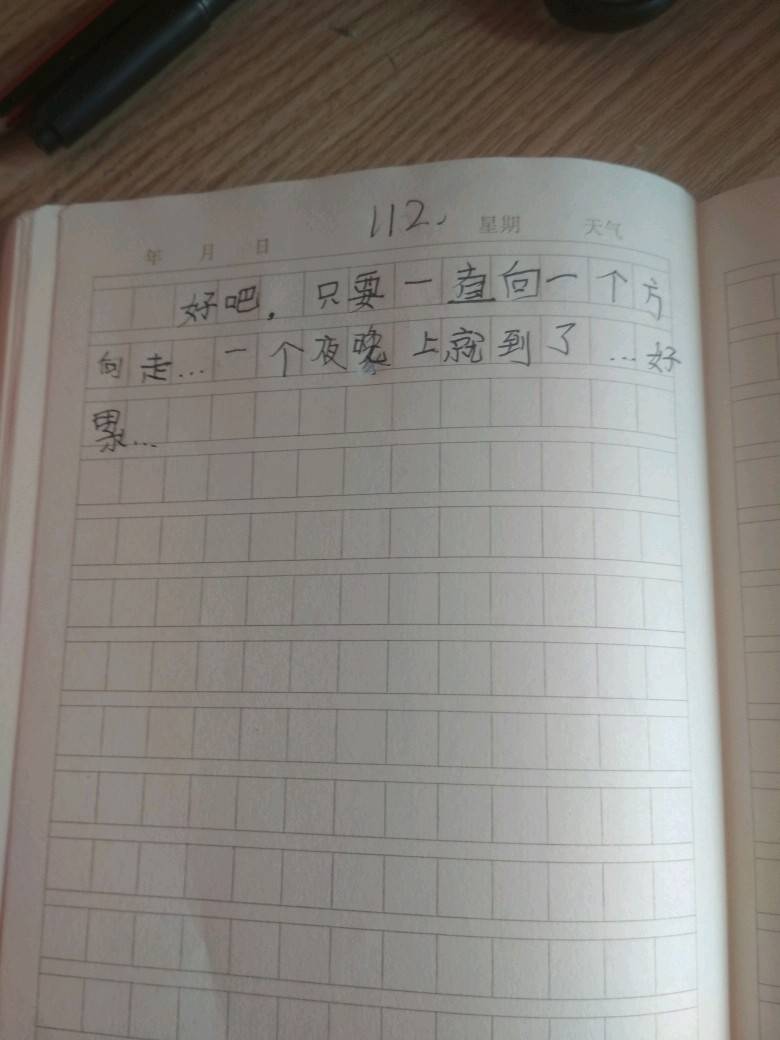 112.
年 月 日 星期 天气
好吧，只要一直向一个方
向走...一个夜晚上就到了...好
累...